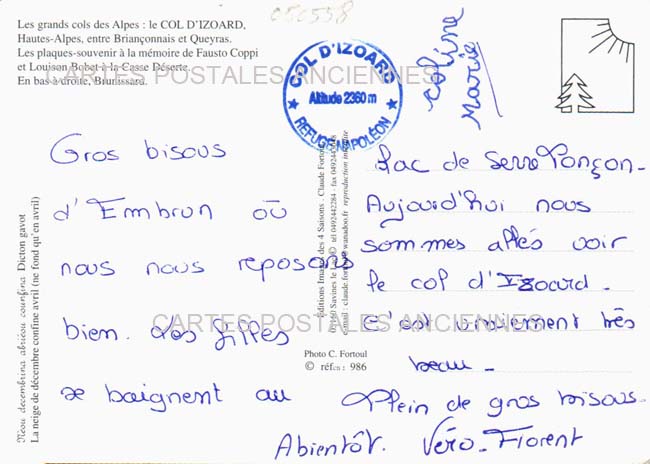 Les grands cols des Alpes : le COL D'IZOARD,
Hautes-Alpes, entre Briançonnais et Queyras.
Les plaques-souvenir à la mémoire de Fausto Coppi
et Louison Bobet à la Casse Déserte.
En bas à droite, Brunissard.
050558
COL D'IZOARD
Altitude 2360 m
REFUGE NAPOLÉON
coline
marie
CARTES POSTALES ANCIENNES
Gros bisous
d'Embrun où
nous nous reposons
bien. Les filles
se baignent au
Lac de Serre Ponçon.
Aujourd'hui nous
sommes allés voir
le col d'Izoard.
c'est vraiment très
beau.
Plein de gros bisous.
Abientôt. Véro. Florent
CARTES POSTALES ANCIENNES
Nèou decembrina abrieou counfina Dicton gavot
La neige de décembre confine avril (ne fond qu'en avril)
Editions Images des 4 Saisons . Claude Fortoul
05160 Savines le Lac tél 0492442284 - fax
e-mail : claude.fortoul@wanadoo.fr reproduction interdite
Photo C. Fortoul
© réfcs : 986